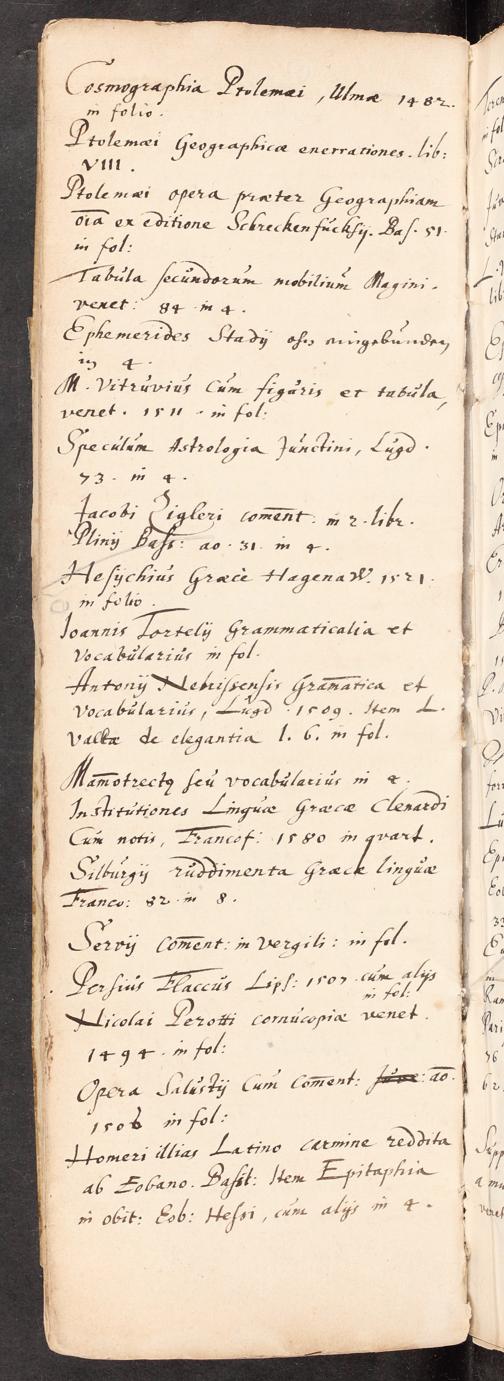 Cosmographia Ptolemæi, Ulmæ 1482.
in folio.
Ptolemæi Geographicæ enerrationes. lib:
VIII.
Ptolemæi opera præter Geographiam
oīa ex editione Schreckenfuchsij. Bas. 51.
in fol:
Tabula secundorum mobilium Magini.
venet: 84 in 4.
Ephemerides Stadij ohn eingebunden
in 4.
M. Vitruvius cum figuris et tabula,
venet. 1511. in fol:
Speculum Astrologia Junctini, Lugd.
73. in 4.
Jacobi Zigleri coment: in 2. libr.
Plinij Bass: ao. 31. in 4.
Hesychius Græcè Hagenaw. 1521.
in folio.
Joannis Tortelij Grammaticalia et
vocabularius in fol.
Antonij Nebrissensis Gramatica et
vocabularius, Lugd. 1509. Item L.
valla de elegantia l. 6. in fol.
Mamotrectq seu vocabularius in 4.
Institutiones Linguæ Græcæ Clenardi
Cum notis, Francof: 1580 in quart.
Silburgij ruddimenta Græcæ linguæ
Franco: 82 in 8.
Servij coment: in vergili: in fol.
Persius Flaccus Lips: 1507. cum alijs
in fol:
Nicolai Perotti cornucopiæ venet.
1494. in fol:
Opera Salustij Cum Coment: ao.
1506 in fol:
Homeri illias Latino carmine reddita
ab Eobano. Basil: Item Epitaphia
in obit: Eob: Hessi, cum alijs in 4.